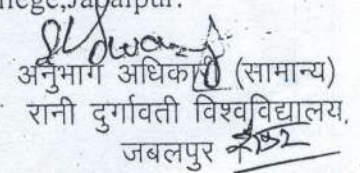 College, Jabalpur.
अनुभाग अधिकारी (सामान्य)
रानी दुर्गावती विश्वविद्यालय,
जबलपुर